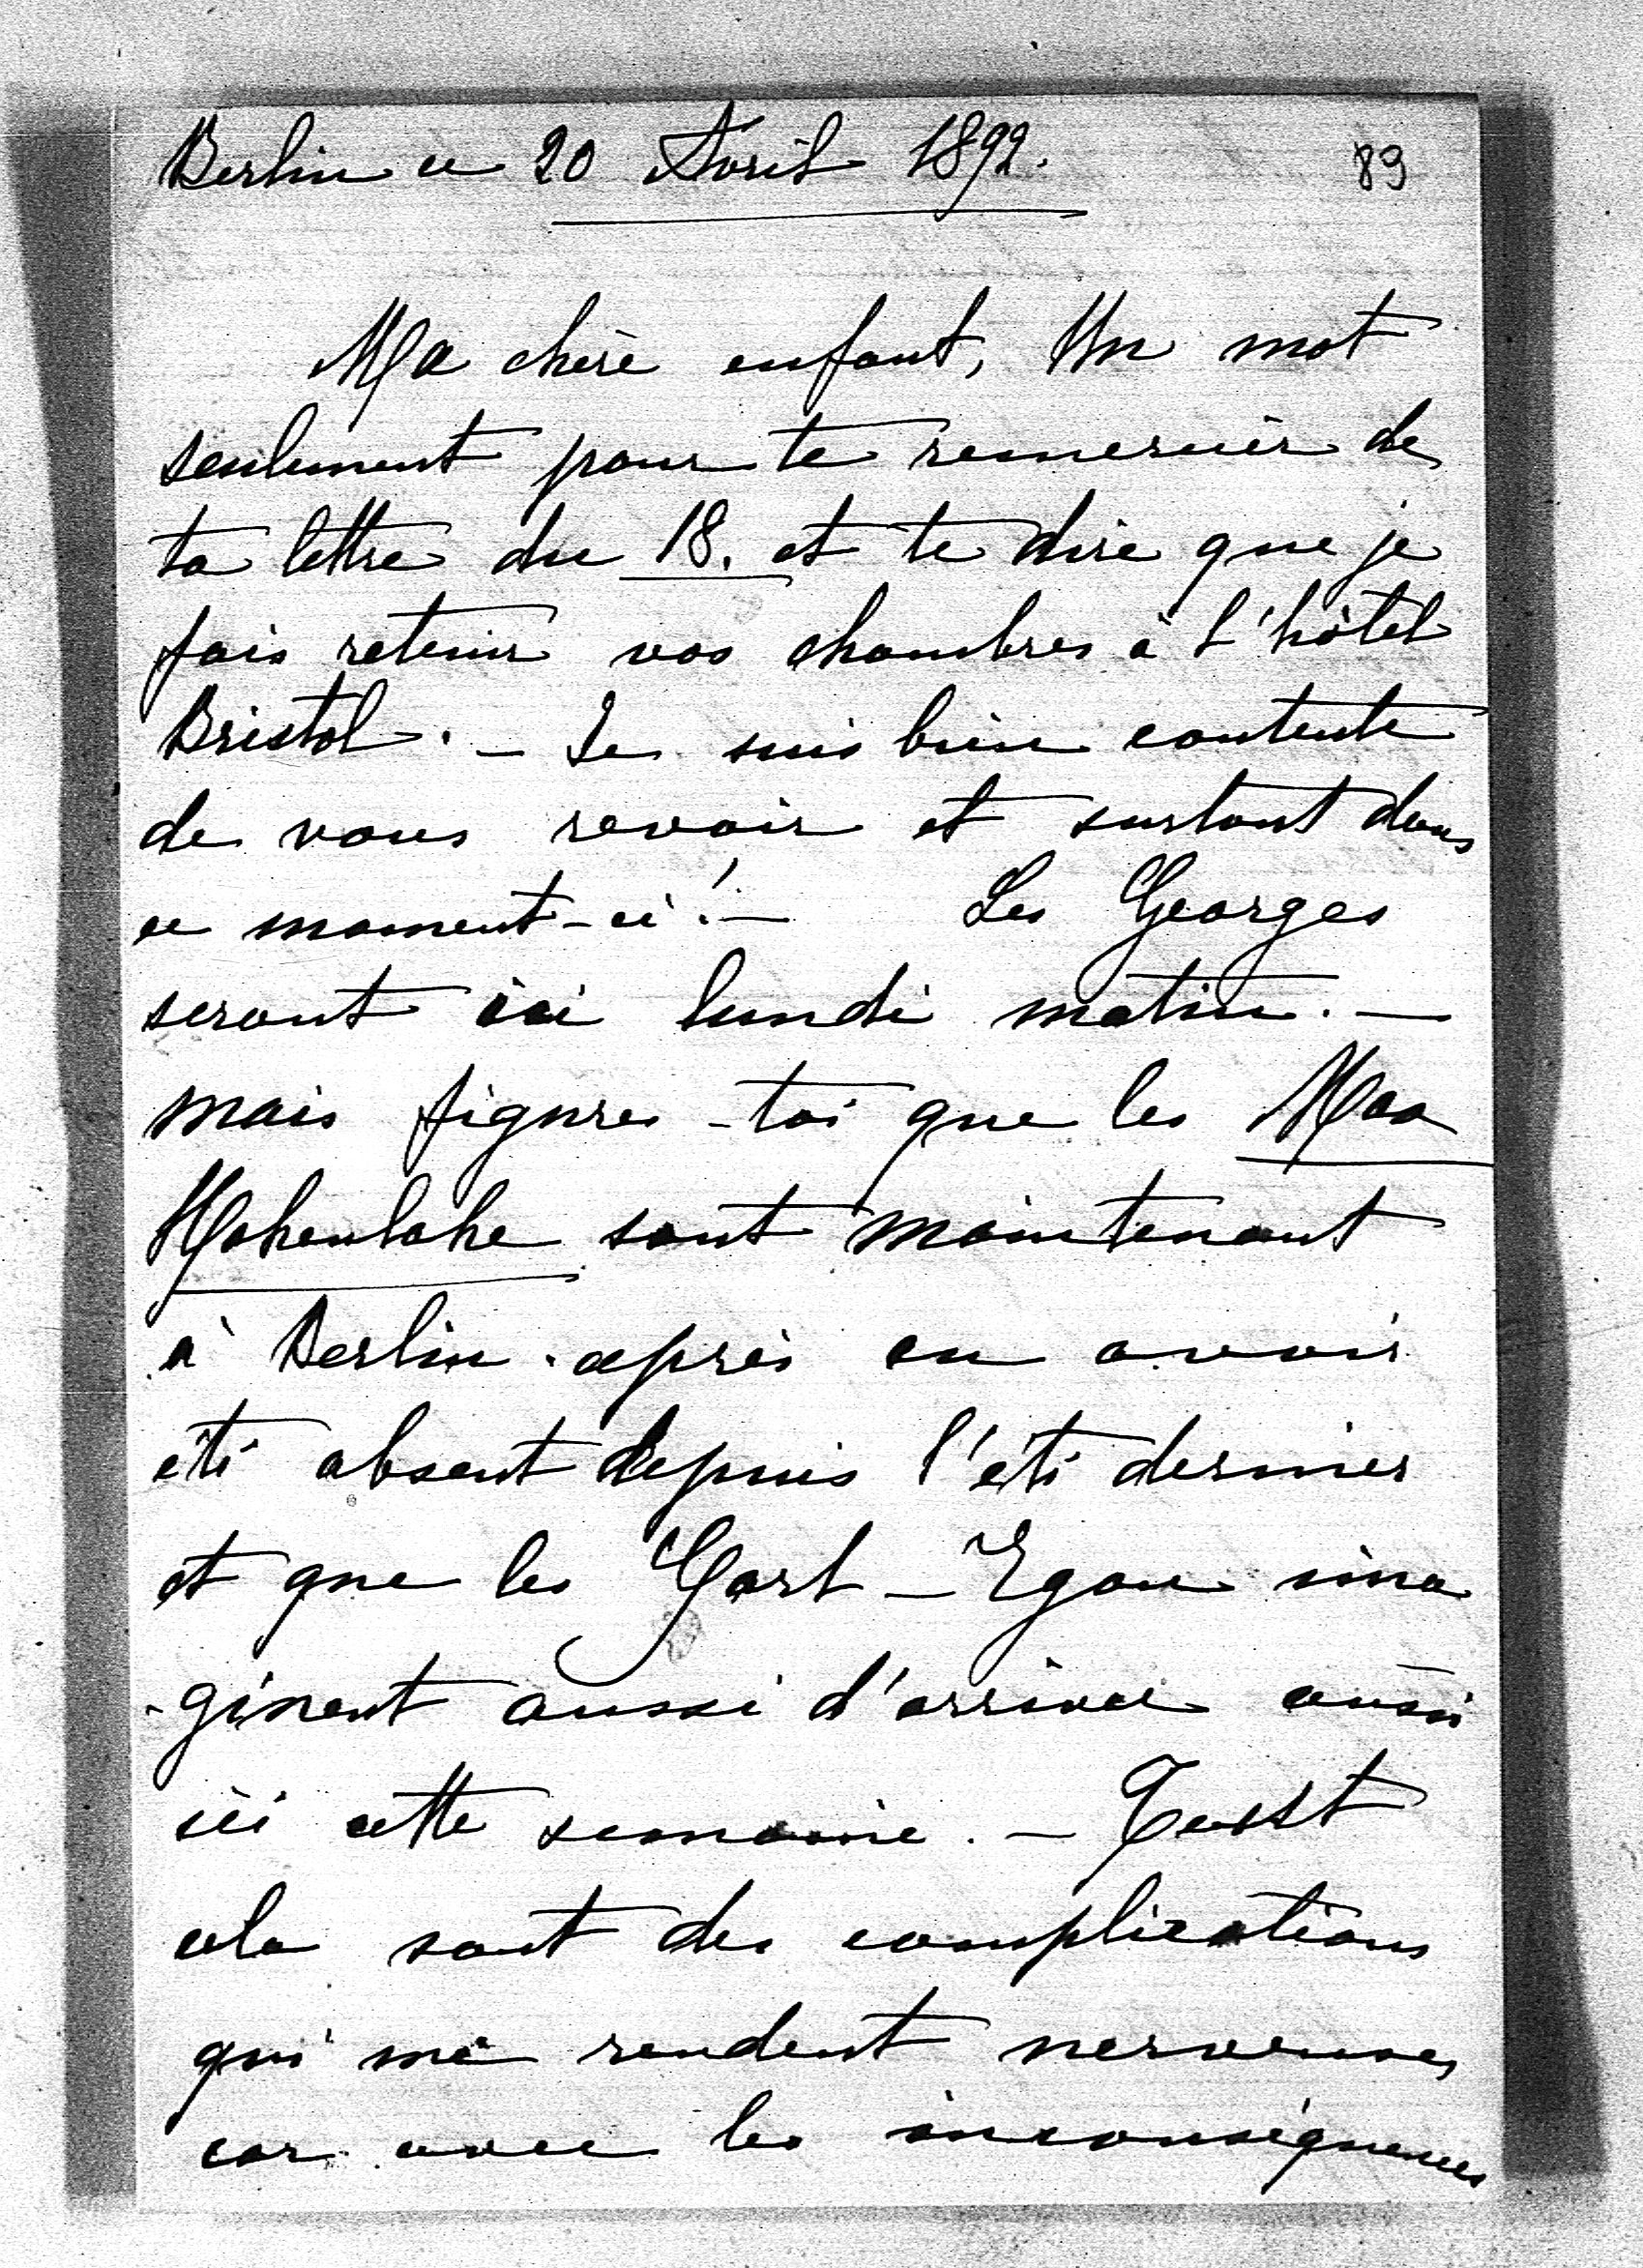 Berlin ce 20 Avril 1892.
89
Ma chère enfant, Un mot
seulement pour te remercier de
ta lettre du 18. et te dire que je
fais retenir vos chambres à l'hôtel
Bristol. — Je suis bien contente
de vous revoir et surtout dans
ce moment-ci! — Les Georges
seront ici lundi matin. —
mais figures-toi que les Max
Hohenlohe sont maintenant
à Berlin. après en avoir
été absent depuis l'été dernier
et que les Carl-Egon ima
-ginent aussi d'arriver aussi
ici cette semaine. — Tout
cela sont des complications
qui me rendent nerveuse,
car avec les inconséquences